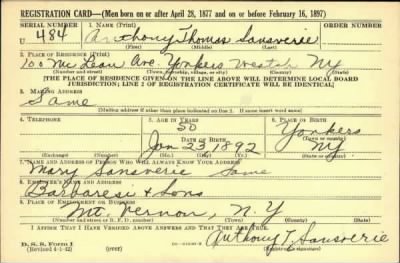 REGISTRATION CARD—(Men born on or after April 28, 1877 and on or before February 16, 1897)
SERIAL NUMBER 1. NAME (Print) ORDER NUMBER
U 484 Anthony Thomas Sansverie
(First) (Middle) (Last)
2. PLACE OF RESIDENCE (Print)
100 Mc Lean Ave. Yonkers Westch NY
(Number and street) (Town, township, village, or city) (County) (State)
[THE PLACE OF RESIDENCE GIVEN ON THE LINE ABOVE WILL DETERMINE LOCAL BOARD
JURISDICTION; LINE 2 OF REGISTRATION CERTIFICATE WILL BE IDENTICAL]
3. MAILING ADDRESS
Same
[Mailing address if other than place indicated on line 2. If same insert word same]
4. TELEPHONE 5. AGE IN YEARS 6. PLACE OF BIRTH
50 Yonkers
DATE OF BIRTH (Town or county)
Jan 23 1892 NY.
(Exchange) (Number) (Mo.) (Day) (Yr.) (State or country)
7. NAME AND ADDRESS OF PERSON WHO WILL ALWAYS KNOW YOUR ADDRESS
Mary Sansverie Same
8. EMPLOYER'S NAME AND ADDRESS
Barbaresi & Sons
9. PLACE OF EMPLOYMENT OR BUSINESS
Mt. Vernon, N.Y
(Number and street or R. F. D. number) (Town) (County) (State)
I AFFIRM THAT I HAVE VERIFIED ABOVE ANSWERS AND THAT THEY ARE TRUE.
D. S. S. Form 1
(Revised 4-1-42) (over) Anthony T. Sansverie
(Registrant's signature)